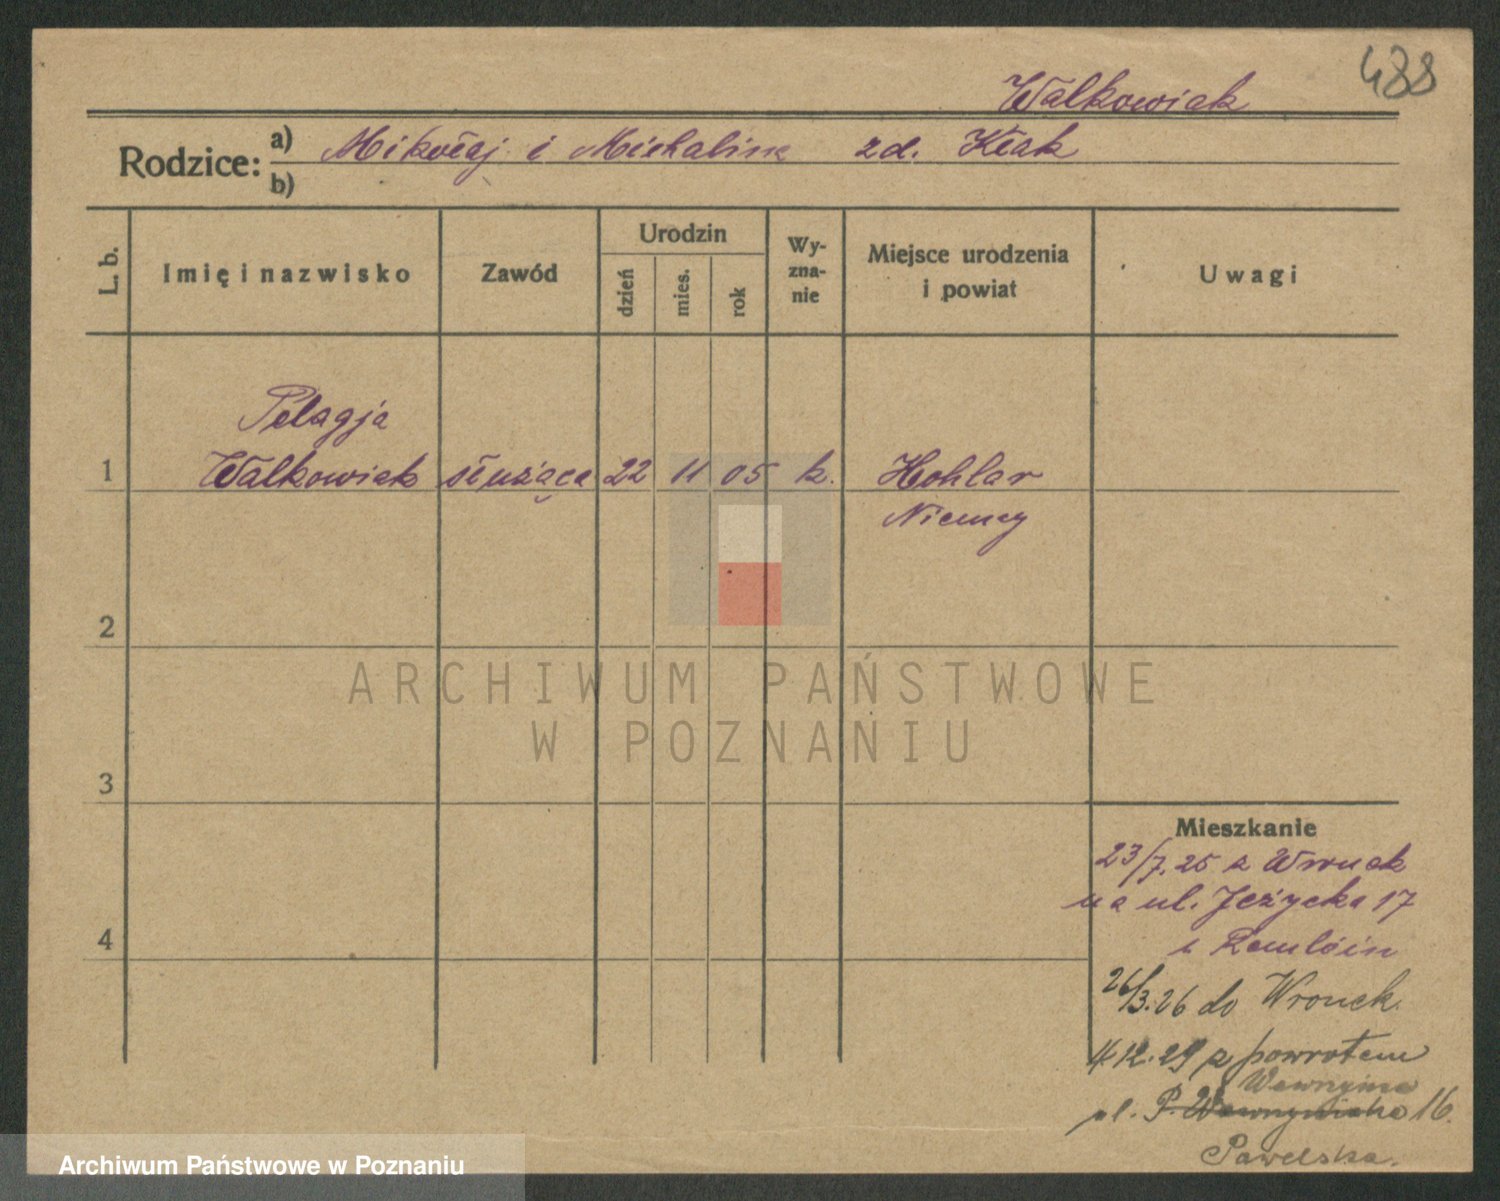 488
Walkowiak
Rodzice: a) Mikołaj i Michalina zd. Kłak
b)
L. b. Imię i nazwisko Zawód Urodzin dzień mies. rok Wy-zna-nie Miejsce urodzenia i powiat Uwagi
Pelagja
1 Walkowiak służąca 22 11 05 k. Hohlar
Niemcy
2
ARCHIWUM PAŃSTWOWE
W POZNANIU
3
Mieszkanie
23/7.25 z Wronek
na ul. Jeżycka 17
4
26/3.26 do Wronek.
12.29 z powrotem
Wawrzyńca
ul. P. Wawrzyniaka 16.
Pawelska.
Archiwum Państwowe w Poznaniu